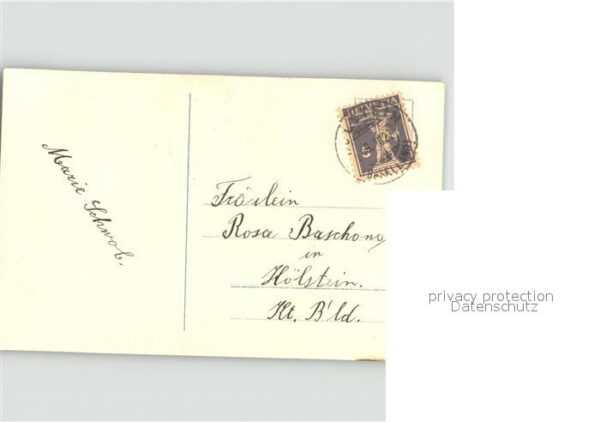 Marie Schwob.
HELVETIA
5
Fräulein
Rosa Baschong
in
Hölstein.
Kt. B'ld.
privacy protection
Datenschutz